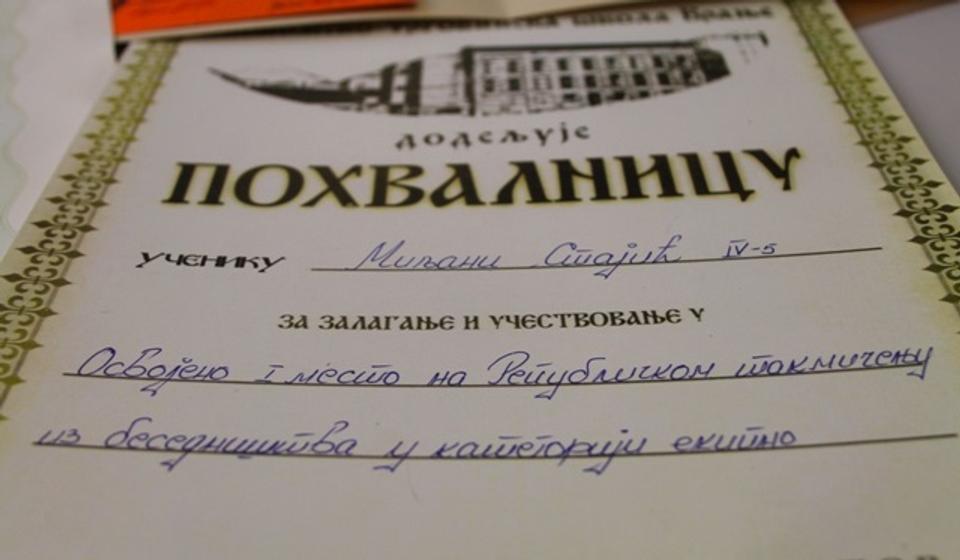 школа Врање
додељује
ПОХВАЛНИЦУ
УЧЕНИКУ Миљани Стајић IV-5
ЗА ЗАЛАГАЊЕ И УЧЕСТВОВАЊЕ У
Освојено I место на Републичком такмичењу
из беседништва у категорији екипно